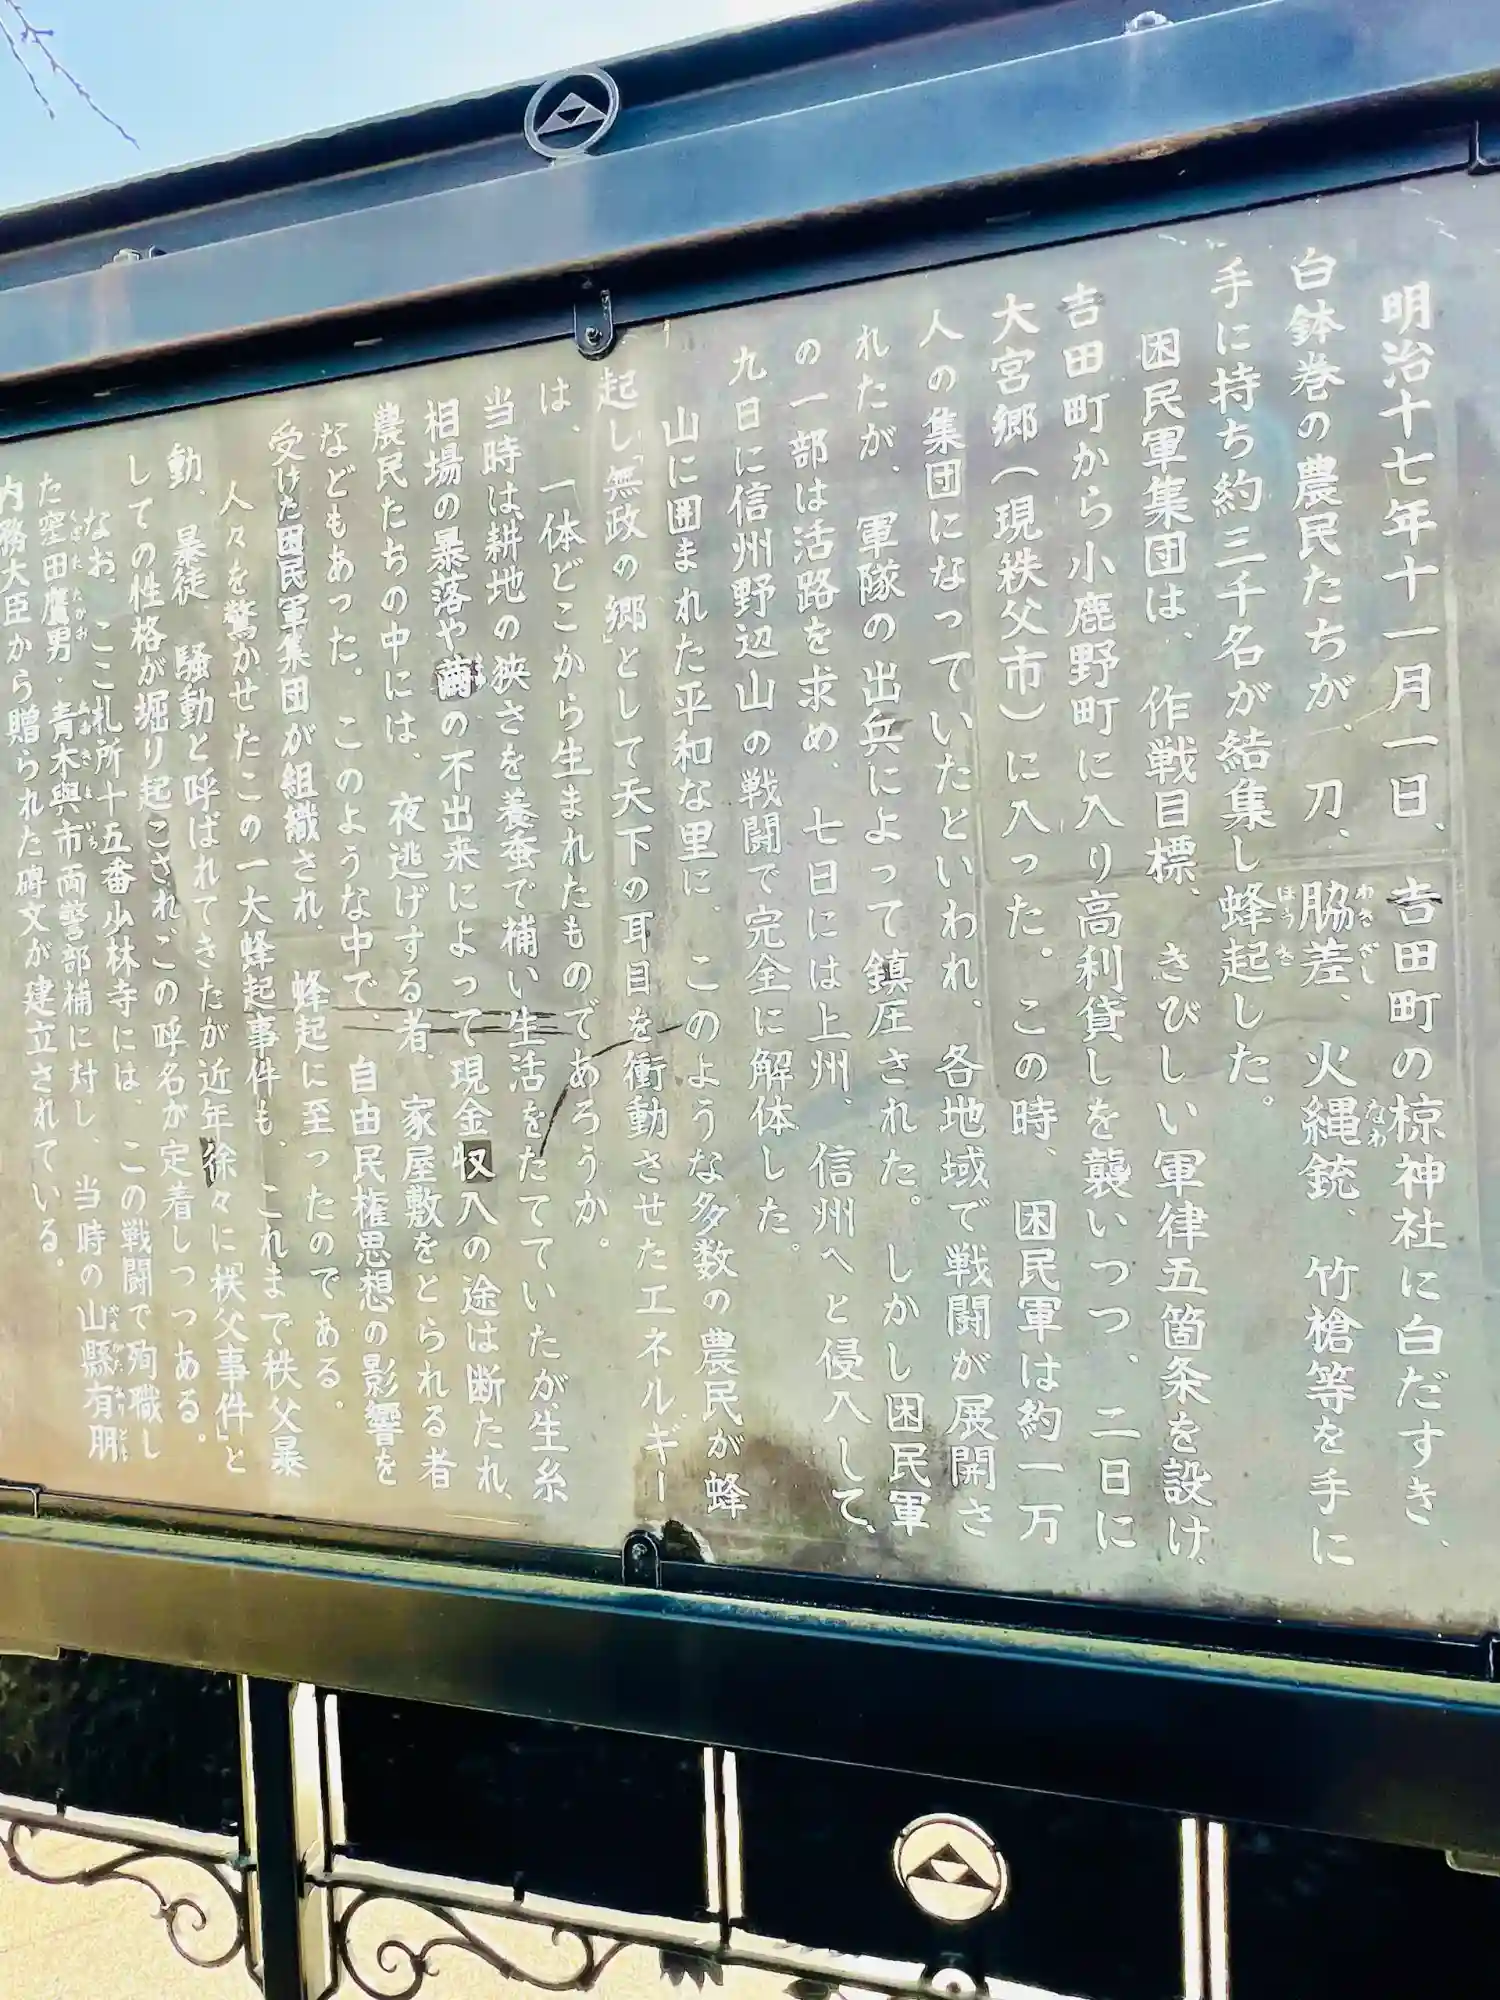 明治十七年十一月一日、吉田町の椋神社に白だすき、
白鉢巻の農民たちが、刀、脇差、火縄銃、竹槍等を手に
わきざし
なわ
手に持ち約三千名が結集し蜂起した。
ほうき
困民軍集団は、作戦目標、きびしい軍律五箇条を設け、
吉田町から小鹿野町に入り高利貸しを襲いつつ、二日に
大宮郷(現秩父市)に入った。この時、困民軍は約一万
人の集団になっていたといわれ、各地域で戦闘が展開さ
れたが、軍隊の出兵によって鎮圧された。しかし困民軍
の一部は活路を求め、七日には上州、信州へと侵入して、
九日に信州野辺山の戦闘で完全に解体した。
山に囲まれた平和な里に、このような多数の農民が蜂
起し「無政の郷」として天下の耳目を衝動させたエネルギー
は、一体どこから生まれたものであろうか。
当時は耕地の狭さを養蚕で補い生活をたてていたが、生糸
相場の暴落や繭の不出来によって現金収入の途は断たれ、
まゆ
農民たちの中には、夜逃げする者、家屋敷をとられる者
などもあった。このような中で、自由民権思想の影響を
受けた困民軍集団が組織され、蜂起に至ったのである。
人々を驚かせたこの一大蜂起事件も、これまで秩父暴
動、暴徒、騒動と呼ばれてきたが近年徐々に「秩父事件」と
しての性格が堀り起こされ、この呼名が定着しつつある。
なお、ここ札所十五番少林寺には、この戦闘で殉職し
た窪田鷹男・青木與市両警部補に対し、当時の山縣有朋
くぼた たかお
あおき よいち
やまがた ありとも
内務大臣から贈られた碑文が建立されている。